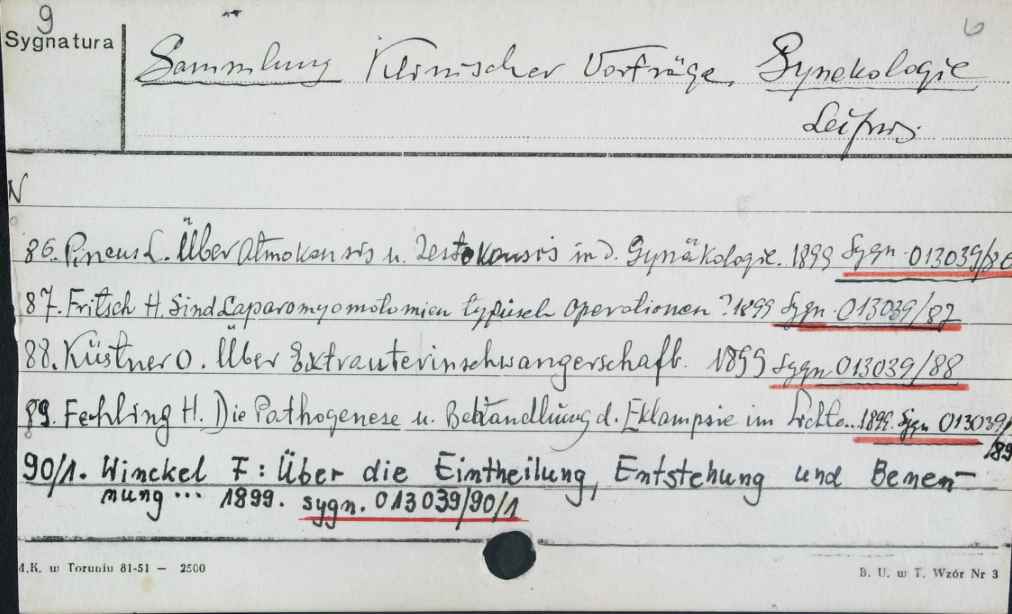 9
6
Sygnatura
Sammlung Klinischer Vorträge, Gynekologie
Leipzig
N
86. Pincus L. Über Atmokausis u. Zestokausis in d. Gynäkologie. 1899 Sygn. 013039/86
87. Fritsch H. Sind Laparomyomotomien typisch Operationen? 1899 Sygn. 013039/87
88. Küstner O. Über Extrauterinschwangerschaft. 1899 Sygn 013039/88
89. Fehling H. Die Pathogenese u. Behandlung d. Eklampsie im Lichte.. 1899. Sygn 013039/
/89
90/1. Winckel F: Über die Eintheilung, Entstehung und Benen-
nung... 1899. sygn. 013039/90/1
M.K. w Toruniu 81-51 — 2500
B. U. w T. Wzór Nr 3